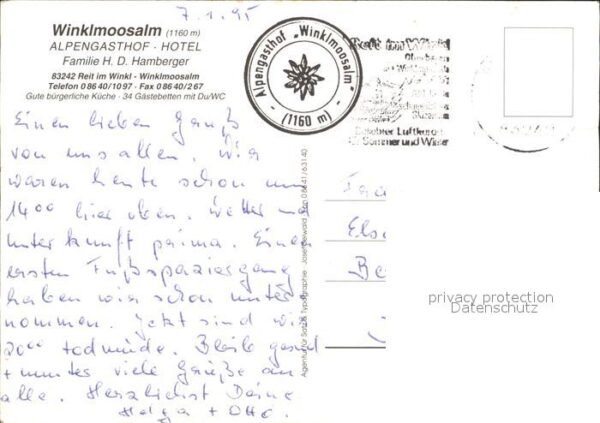 7.1.95
Winklmoosalm (1160 m)
ALPENGASTHOF · HOTEL
Familie H. D. Hamberger
83242 Reit im Winkl - Winklmoosalm
Telefon 0 86 40/10 97 · Fax 0 86 40/2 67
Gute bürgerliche Küche · 34 Gästebetten mit Du/WC
Alpengasthof „Winklmoosalm"
(1160 m)
Luftkurort
Sommer und Winter
Einen lieben Gruß
von uns allen. Wir
waren heute schon um
14°° hier oben. Wetter und
Unterkunft prima. Einen
ersten Fußspaziergang
haben wir schon unter-
nommen. Jetzt sind wir
20°° todmüde. Bleibe gesund
+ munter viele Grüße an
alle. Herzlichst Deine
Helga + Otto.
Agentur für Satz & Typographie
Fra
Els
Be
privacy protection
Datenschutz